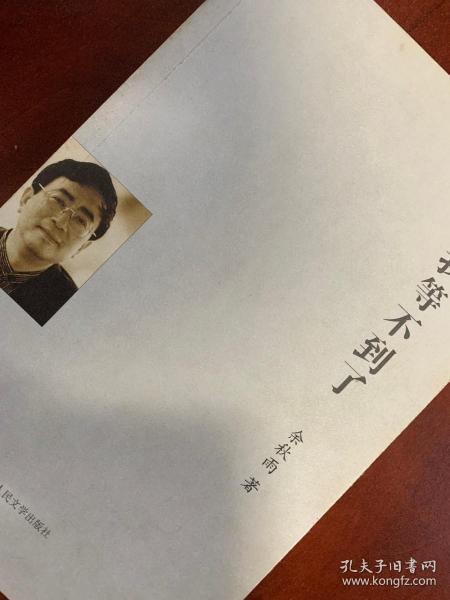 我等不到了
余秋雨 著
人民文学出版社
孔夫子旧书网
www.kongfz.com